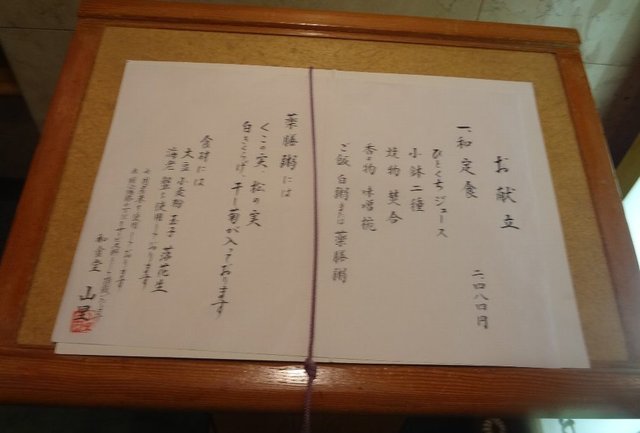 お献立
一、和定食
二、〇八〇円
ひとくちジュース
小鉢二種
焼物 焚合
香の物 味噌椀
ご飯 白粥または薬膳粥
薬膳粥には
くこの実、松の実
白きくらげ、干し菊が入っております
食材には
大豆 小麦粉 玉子 落花生
海老 蟹を使用しております
山里